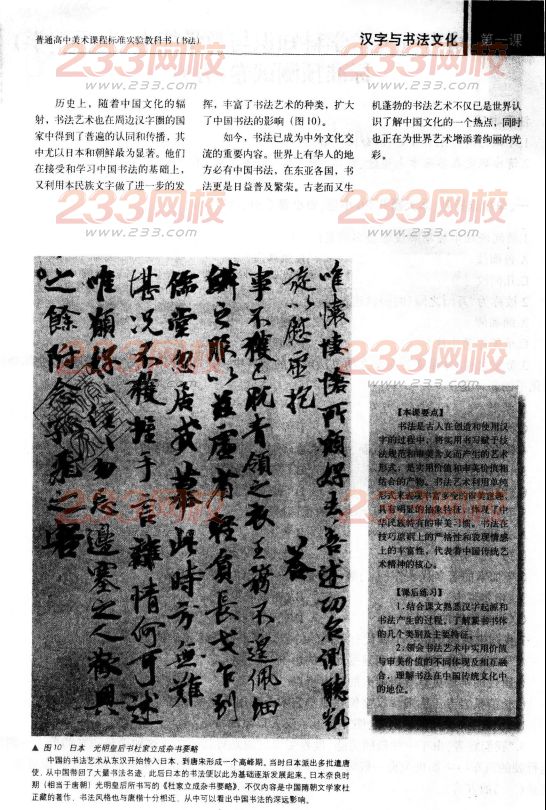 普通高中美术课程标准实验教科书(书法)
汉字与书法文化
第一课
历史上，随着中国文化的辐
射，书法艺术也在周边汉字圈的国
家中得到了普遍的认同和传播，其
中尤以日本和朝鲜最为显著。他们
在接受和学习中国书法的基础上，
又利用本民族文字做了进一步的发
挥，丰富了书法艺术的种类，扩大
了中国书法的影响(图10)。
如今，书法已成为中外文化交
流的重要内容。世界上有华人的地
方必有中国书法，在东亚各国，书
法更是日益普及繁荣。古老而又生
机蓬勃的书法艺术不仅已是世界认
识了解中国文化的一个热点，同时
也正在为世界艺术增添着绚丽的光
彩。
233网校
www.233.com
唯懐悽愴所願好去善述功名側聽凱
旋以慰願抱
答
事不獲已脱青領之衣王務不遑佩細
鱗之服以兹虚薄輕負長戈乍到
儒堂忽居戎幕此時方無難
堪况不獲握手言離情何可述
唯願好住勿忘邊塞之人歡興
之餘附念
【本课要点】
书法是古人在创造和使用汉
字的过程中，将实用书写赋予技
法规范和审美含义而产生的艺术
形式，是实用价值和审美价值相
结合的产物。书法艺术利用单纯
形式来表现丰富多变的审美意趣，
具有明显的抽象特征，体现了中
华民族特有的审美习惯。书法在
技巧原则上的严格性和表现情感
上的丰富性，代表着中国传统艺
术精神的核心。
【课后练习】
1.结合课文熟悉汉字起源和
书法产生的过程，了解篆书体
的几个类别及主要特征。
2.领会书法艺术中实用价值
与审美价值的不同体现及相互融
合，理解书法在中国传统文化中
的地位。
▲ 图10 日本 光明皇后书杜家立成杂书要略
中国的书法艺术从东汉开始传入日本，到唐宋形成一个高峰期。当时日本派出多批遣唐
使，从中国带回了大量书法名迹，此后日本的书法便以此为基础逐渐发展起来。日本奈良时
期(相当于唐朝)光明皇后所书写的《杜家立成杂书要略》，不仅内容是中国隋朝文学家杜
正藏的著作，书法风格也与唐楷十分相近，从中可以看出中国书法的深远影响。